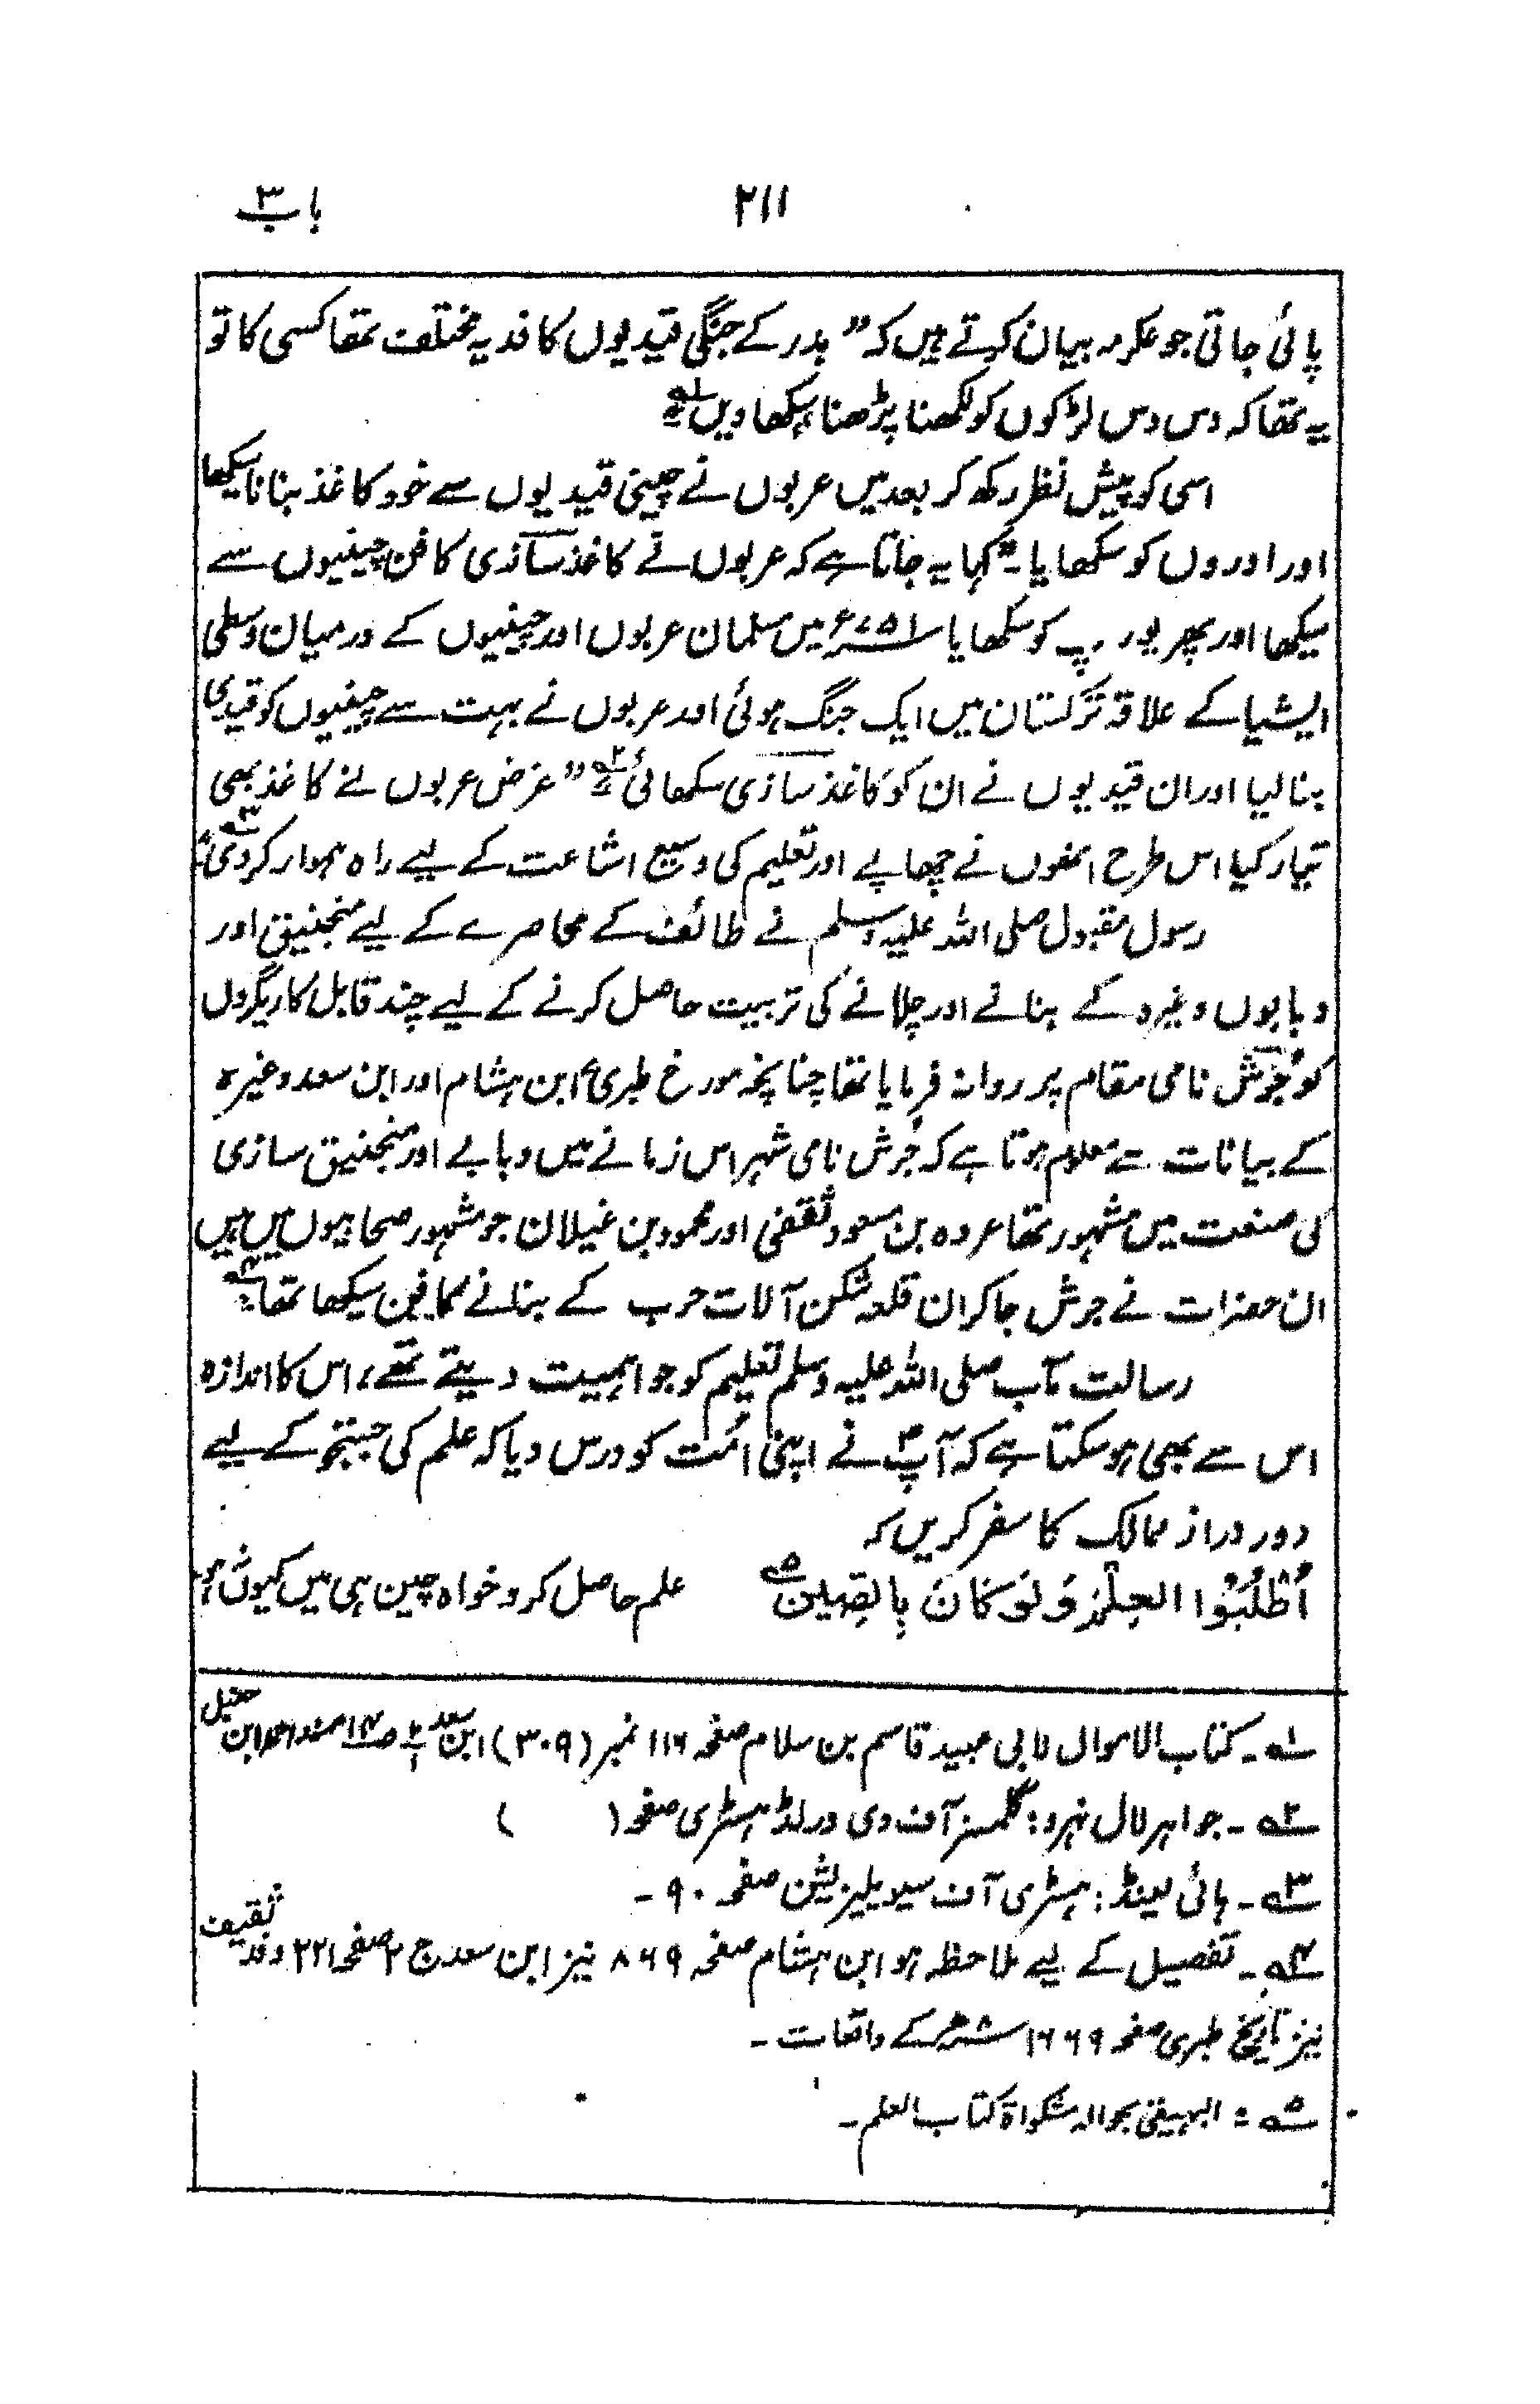 باب ۳
۲۱۱
پائی جاتی جو عکرمہ بیان کرتے ہیں کہ ”بدر کے جنگی قیدیوں کا فدیہ مختلف تھا کسی کا تو
یہ تھا کہ دس دس لڑکوں کو لکھنا پڑھنا سکھا دیں ۱؎
اسی کو پیش نظر رکھ کر بعد میں عربوں نے چینی قیدیوں سے خود کاغذ بنانا سیکھا
اور اوروں کو سکھایا۔ ”کہا یہ جاتا ہے کہ عربوں نے کاغذ سازی کا فن چینیوں سے
سیکھا اور پھر یورپ کو سکھایا ۷۵۱ء میں مسلمان عربوں اور چینیوں کے درمیان وسطی
ایشیا کے علاقہ ترکستان میں ایک جنگ ہوئی اور عربوں نے بہت سے چینیوں کو قیدی
بنا لیا اور ان قیدیوں نے ان کو کاغذ سازی سکھائی ۲؎“ غرض عربوں نے کاغذ بھی
تیار کیا اس طرح انھوں نے چھاپے اور تعلیم کی وسیع اشاعت کے لیے راہ ہموار کر دی ۳؎
رسول مقبول صلی اللہ علیہ وسلم نے طائف کے محاصرے کے لیے منجنیق اور
دبابوں وغیرہ کے بنانے اور چلانے کی تربیت حاصل کرنے کے لیے چند قابل کاریگروں
کو جُرش نامی مقام پر روانہ فرمایا تھا چنانچہ مورخ طبری، ابن ہشام اور ابن سعد وغیرہ
کے بیانات سے معلوم ہوتا ہے کہ جُرش نامی شہر اس زمانے میں دبابے اور منجنیق سازی
کی صنعت میں مشہور تھا عروہ بن مسعود ثقفی اور محمود بن غیلان جو مشہور صحابیوں میں ہیں
ان حضرات نے جرش جا کر ان قلعہ شکن آلات حرب کے بنانے کا فن سیکھا تھا ۴؎
رسالت مآب صلی اللہ علیہ وسلم تعلیم کو جو اہمیت دیتے تھے، اس کا اندازہ
اس سے بھی ہو سکتا ہے کہ آپؐ نے اپنی امُت کو درس دیا کہ علم کی جستجو کے لیے
دور دراز ممالک کا سفر کریں کہ
اُطْلُبُوا العِلْمَ وَلَو کَانَ بِالصِّینِ ۵؎ علم حاصل کرو خواہ چین ہی میں کیوں نہ ہو
۱؎۔ کتاب الاموال لابی عبید قاسم بن سلام صفحہ ۱۱۶ نمبر (۳۰۹) ابن سعد ۲/۱ ص۱۴ مسند احمد ابن حنبل
۲؎۔ جواہر لال نہرو: گلمسز آف دی ورلڈ ہسٹری صفحہ ( )
۳؎۔ ہائی لینڈ: ہسٹری آف سیویلیزیشن صفحہ ۹۰۔
۴؎۔ تفصیل کے لیے ملاحظہ ہو ابن ہشام صفحہ ۸۶۹ نیز ابن سعد ج ۲ صفحہ ۲۲۱ وفد ثقیف
نیز تاریخ طبری صفحہ ۱۶۶۹ ۸ھ کے واقعات۔
۵؎: البیہقی بحوالہ مشکواۃ کتاب العلم۔